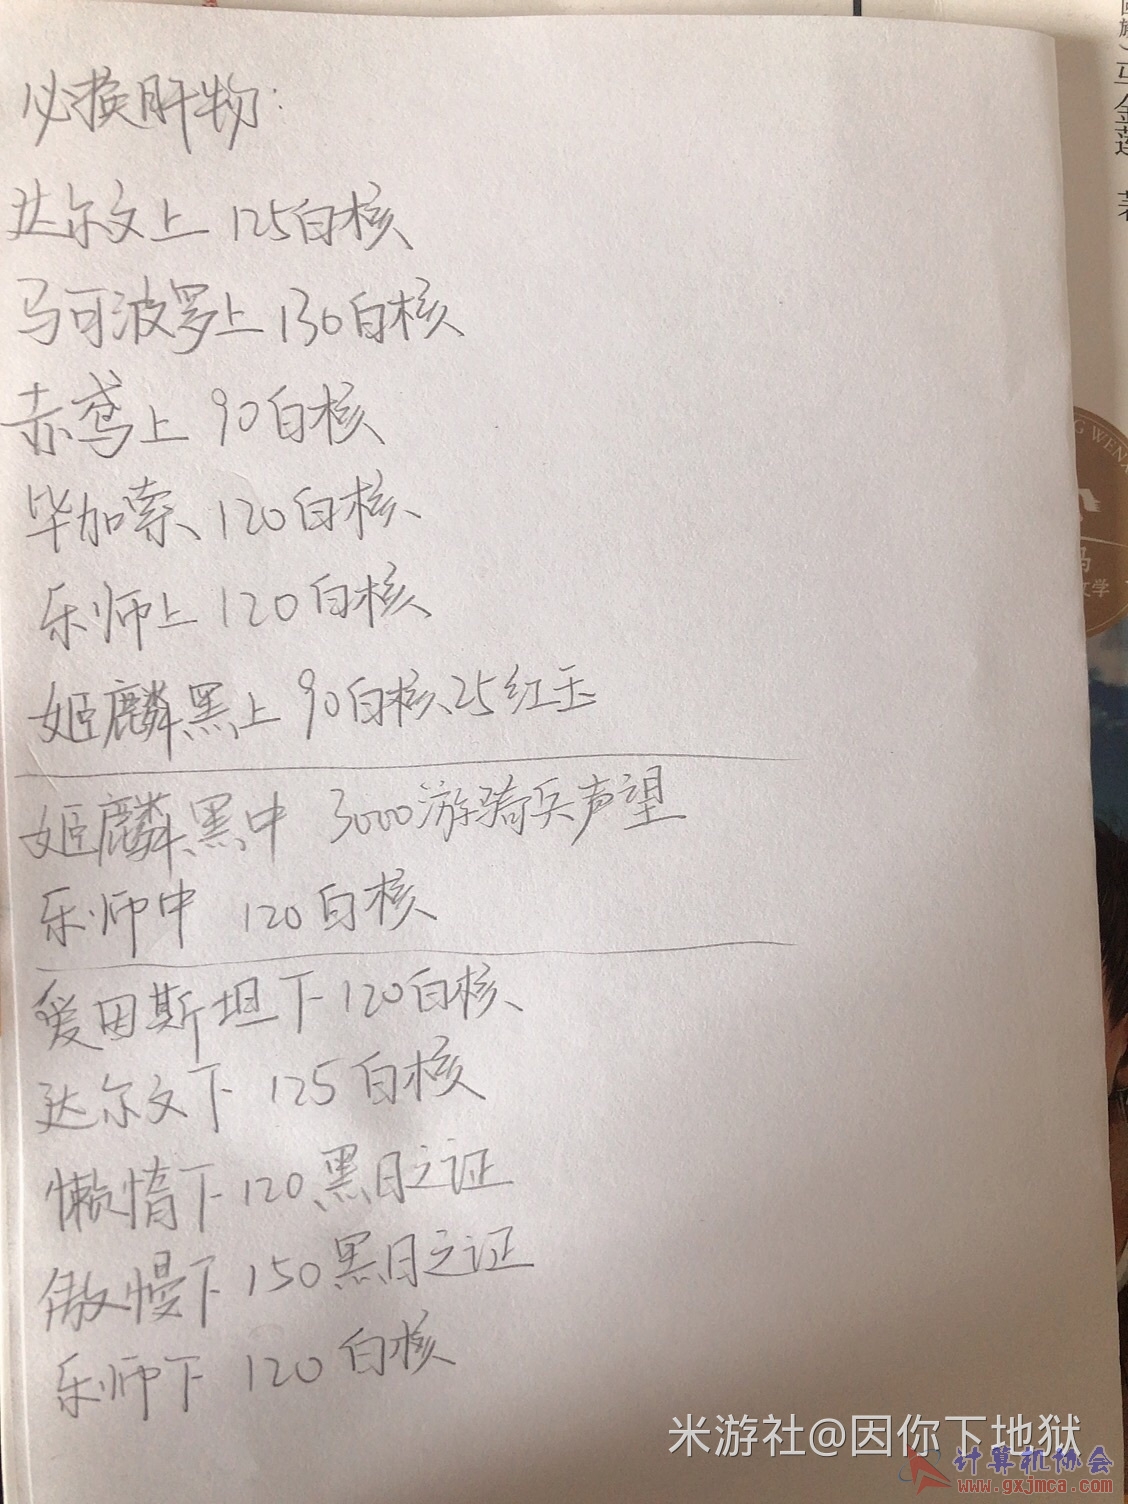 必换肝物:
达尔文上 125白核
马可波罗上 130白核
赤鸢上 90白核
毕加索 120白核
乐师上 120白核
姬麟黑上 90白核25红玉
姬麟黑中 3000游骑兵声望
乐师中 120白核
爱因斯坦下 120白核
达尔文下 125白核
懒惰下 120黑日之证
傲慢下 150黑日之证
乐师下 120白核
金莲 著
G WENX
马
文学
米游社@因你下地狱
计算机协会
www.gxjmca.com